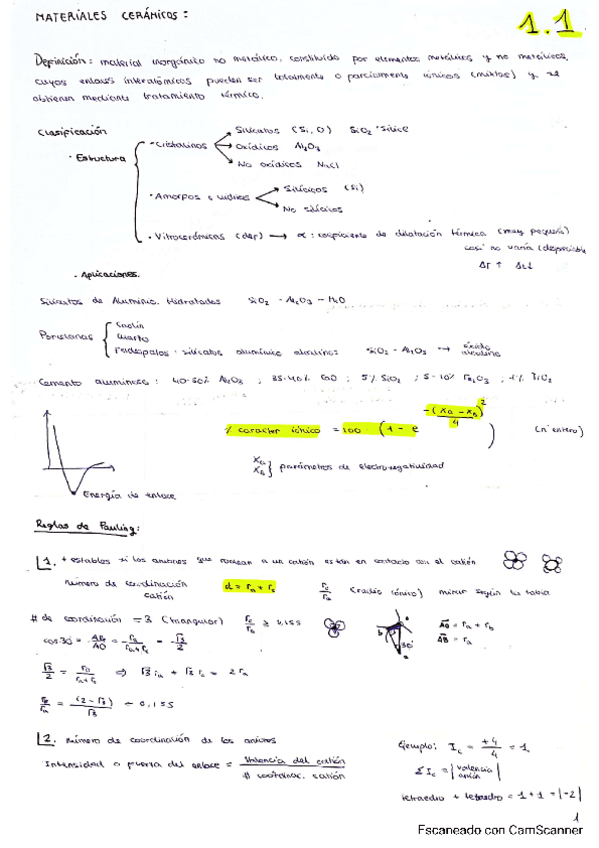 MATERIALES CERÁMICOS:
1.1
Definición: material inorgánico no metálico, constituido por elementos metálicos y no metálicos,
cuyos enlaces interatómicos pueden ser totalmente o parcialmente iónicos (mixtos) y se
obtienen mediante tratamiento térmico.
Clasificación
· Estructura
· Cristalinos
Silicatos (Si, O) SiO2 · Sílice
Oxídicos Al2O3
No oxídicos NaCl
· Amorfos o vidrios
Silícicos (Si)
No silícicos
· Vitrocerámicas → α: coeficiente de dilatación térmica (muy pequeño)
casi no varía
ΔT ↑
· Aplicaciones.
Silicatos de Aluminio Hidratados SiO2 - Al2O3 - H2O
Porcelanas
Caolín
Cuarzo
Feldespatos: silicatos alumínico alcalinos SiO2 - Al2O3 → óxido alcalino
Cemento aluminoso: 40-50% Al2O3 ; 35-40% CaO ; 5% SiO2 ; 5-10% Fe2O3 ; 1% TiO2
% caracter iónico = 100 · (1 - e^(-(Xa - Xb)²/4)) (nº entero)
Xa
Xb } parámetros de electronegatividad
Energía de enlace
Reglas de Pauling:
1. + estables si los aniones que rodean a un catión están en contacto con el catión
número de coordinación catión
d = ra + rc
rc/ra (radio iónico) mirar según la tabla
# de coordinación = 3 (triangular) rc/ra ≥ 0,155
cos 30 = AB/AO = ra/(ra + rc) = √3/2
AO = ra + rc
AB = ra
30º
√3/2 = ra/(ra + rc) ⇒ √3 ra + √3 rc = 2ra
rc/ra = (2 - √3)/√3 = 0,155
2. número de coordinación de los aniones
Intensidad o fuerza del enlace = Valencia del catión / # coordinac. catión
Ejemplo: Ic = +4/4 = 1
Σ Ic = |valencia anión|
tetraedro + tetraedro = 1 + 1 = |-2|
1
Escaneado con CamScanner